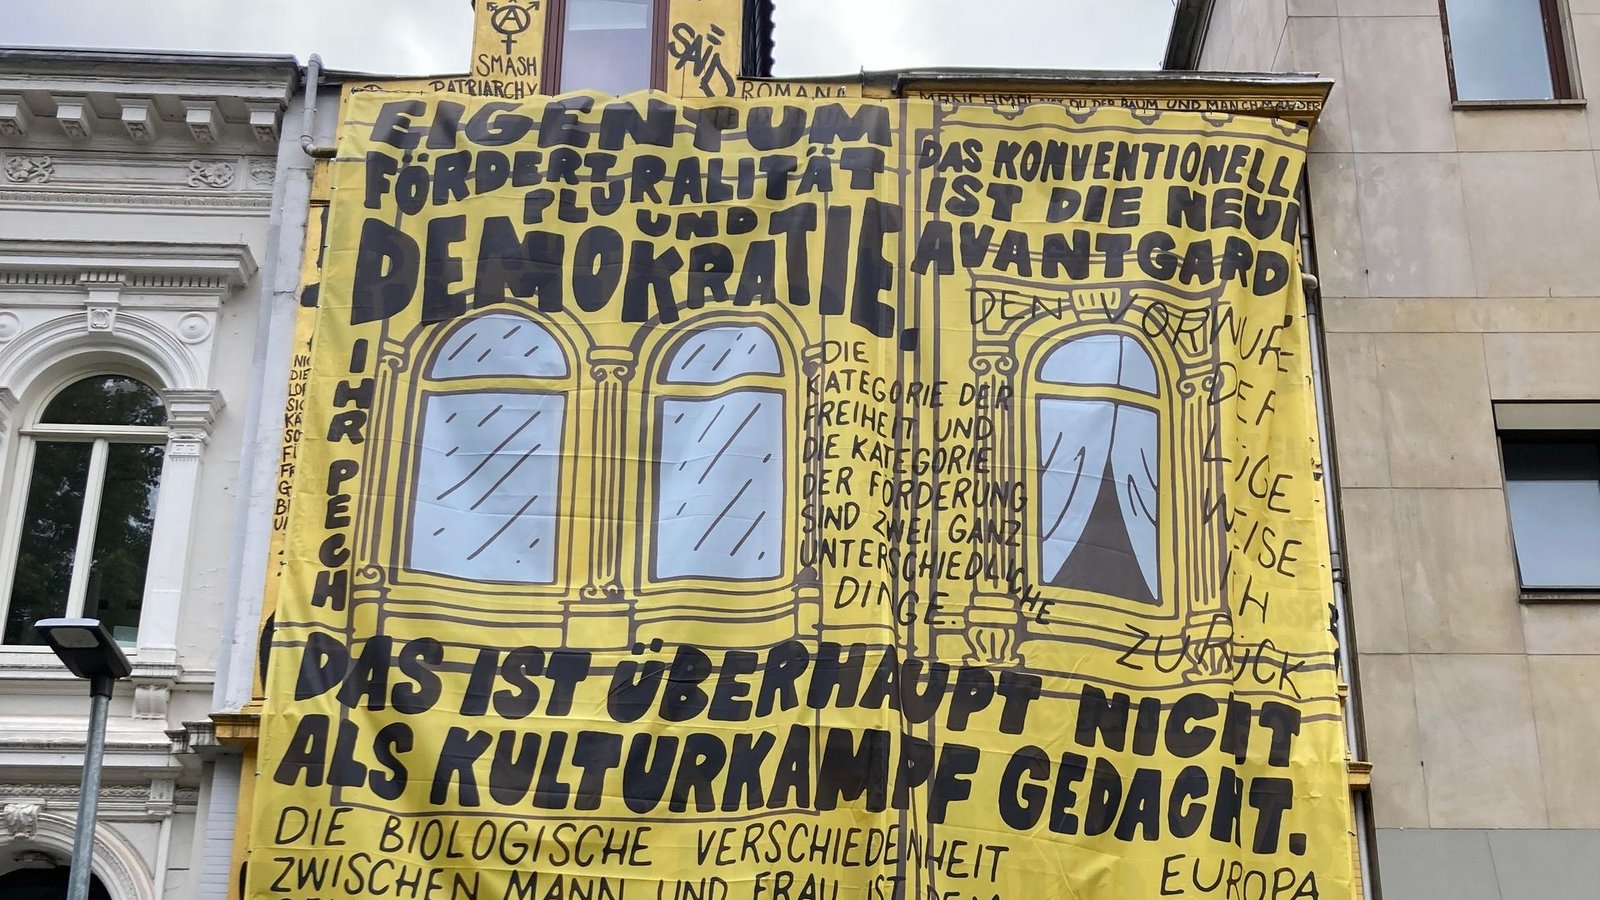 SMASH
PATRIARCHY
SAID
ROMANI
MANCHMAL
DU DER BAUM UND MANCHMAL
EIGENTUM
FÖRDERT
PLURALITÄT
UND
DEMOKRATIE.
IHR PECH
DAS KONVENTIONELL
IST DIE NEUE
AVANTGARD
DIE
KATEGORIE DER
FREIHEIT UND
DIE KATEGORIE
DER FÖRDERUNG
SIND ZWEI GANZ
UNTERSCHIEDLICHE
DINGE.
DEN VORWURF
DER
LÜGE
WEISE
ICH
ZURÜCK
DAS IST ÜBERHAUPT NICHT
ALS KULTURKAMPF GEDACHT.
DIE BIOLOGISCHE VERSCHIEDENHEIT
ZWISCHEN MANN UND FRAU IST DEM
EUROPA